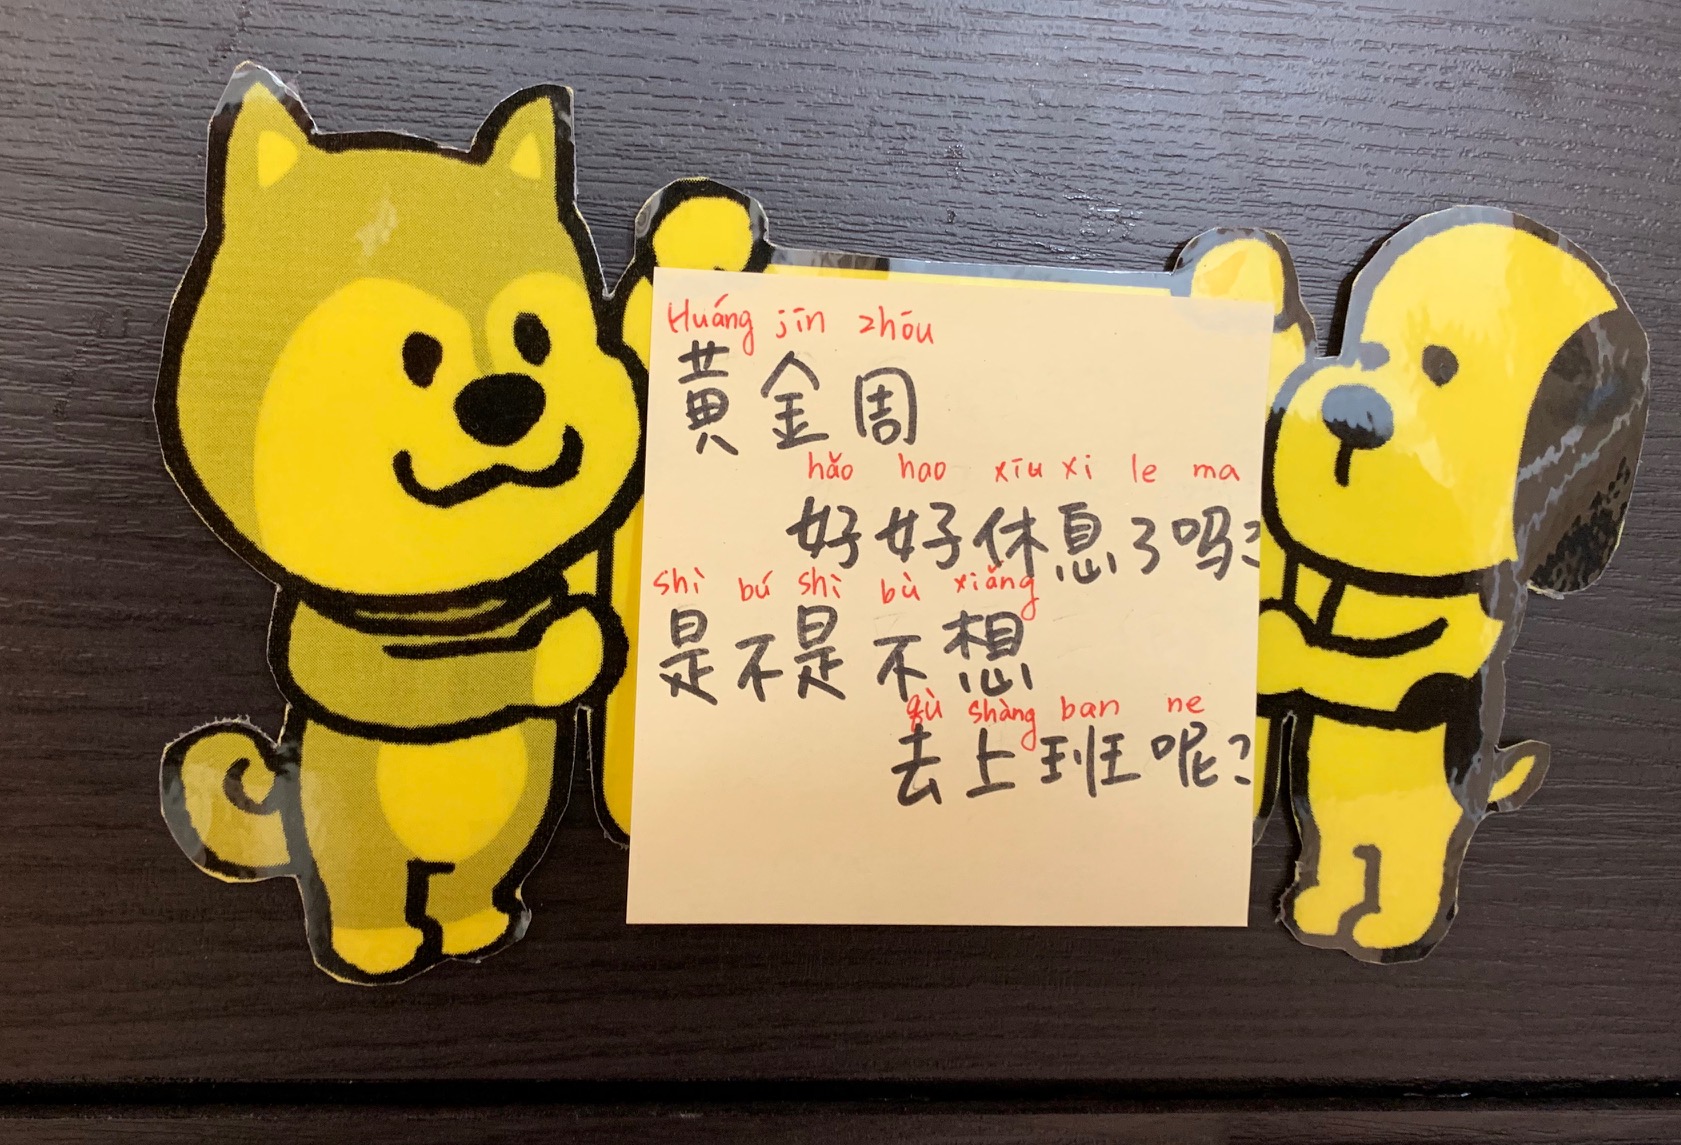 Huáng jīn zhōu
黄金周
hǎo hao xīu xi le ma
好好休息了吗?
shì bú shì bù xiǎng
是不是不想
qù shàng ban ne
去上班呢?